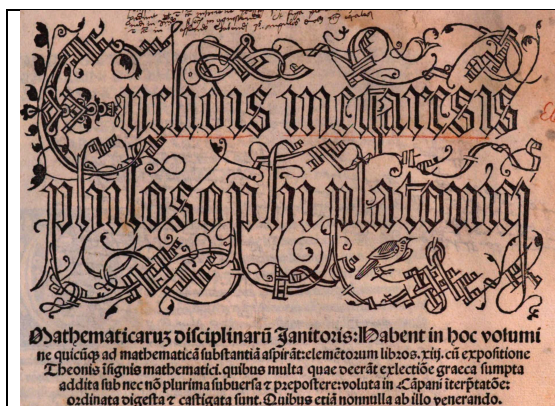 Euclidis megarēsis
philosophi platonici
Mathematicaruʒ disciplinarū Janitoris: Habent in hoc volumi
ne quicūqꝫ ad mathematicā substantiā aspirāt: elemētorum libros.xiij. cū expositione
Theonis īsignis mathematici. quibus multa quae deerāt ex lectiōe graeca sumpta
addita sub nec nō plurima subuersa ⁊ prepostere: voluta in Cāpani īterp̄tatōe:
ordinata digesta ⁊ castigata sunt. Quibus etiā nonnulla ab illo venerando.